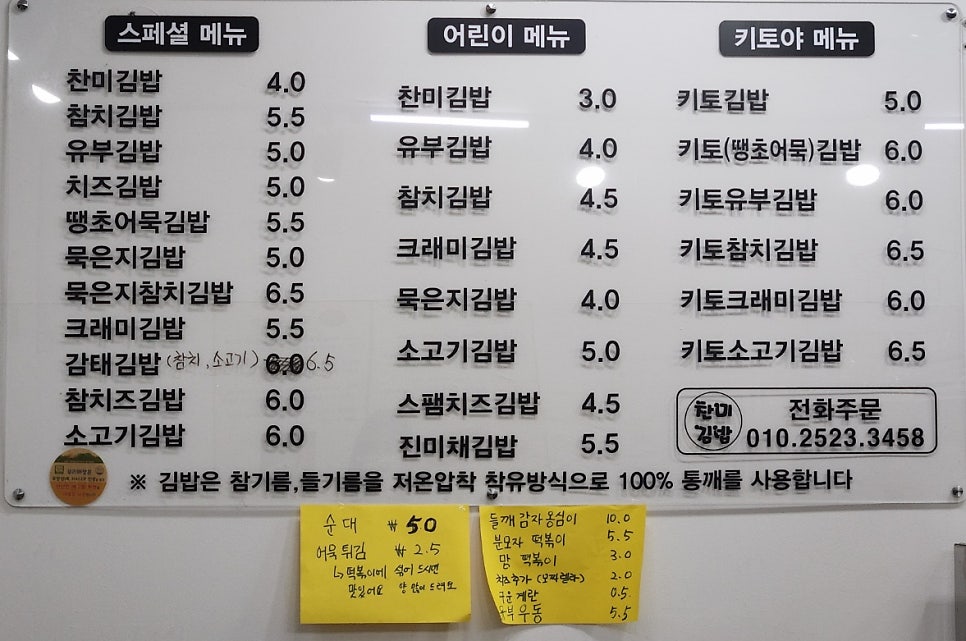 스페셜 메뉴
찬미김밥 4.0
참치김밥 5.5
유부김밥 5.0
치즈김밥 5.0
땡초어묵김밥 5.5
묵은지김밥 5.0
묵은지참치김밥 6.5
크래미김밥 5.5
감태김밥 (참치, 소고기) 6.0 6.5
참치즈김밥 6.0
소고기김밥 6.0
어린이 메뉴
찬미김밥 3.0
유부김밥 4.0
참치김밥 4.5
크래미김밥 4.5
묵은지김밥 4.0
소고기김밥 5.0
스팸치즈김밥 4.5
진미채김밥 5.5
키토야 메뉴
키토김밥 5.0
키토(땡초어묵)김밥 6.0
키토유부김밥 6.0
키토참치김밥 6.5
키토크래미김밥 6.0
키토소고기김밥 6.5
찬미
김밥
전화주문
010.2523.3458
※ 김밥은 참기름,들기름을 저온압착 착유방식으로 100% 통깨를 사용합니다
순대 ₩ 50
어묵튀김 ₩ 2.5
↳ 떡볶이에 섞어 드시면
맛있어요 양 많이 드려요
들깨 감자옹심이 10.0
분모자 떡볶이 5.5
맘 떡볶이 3.0
치즈추가 (모짜렐라) 2.0
구운계란 0.5
우동 5.5